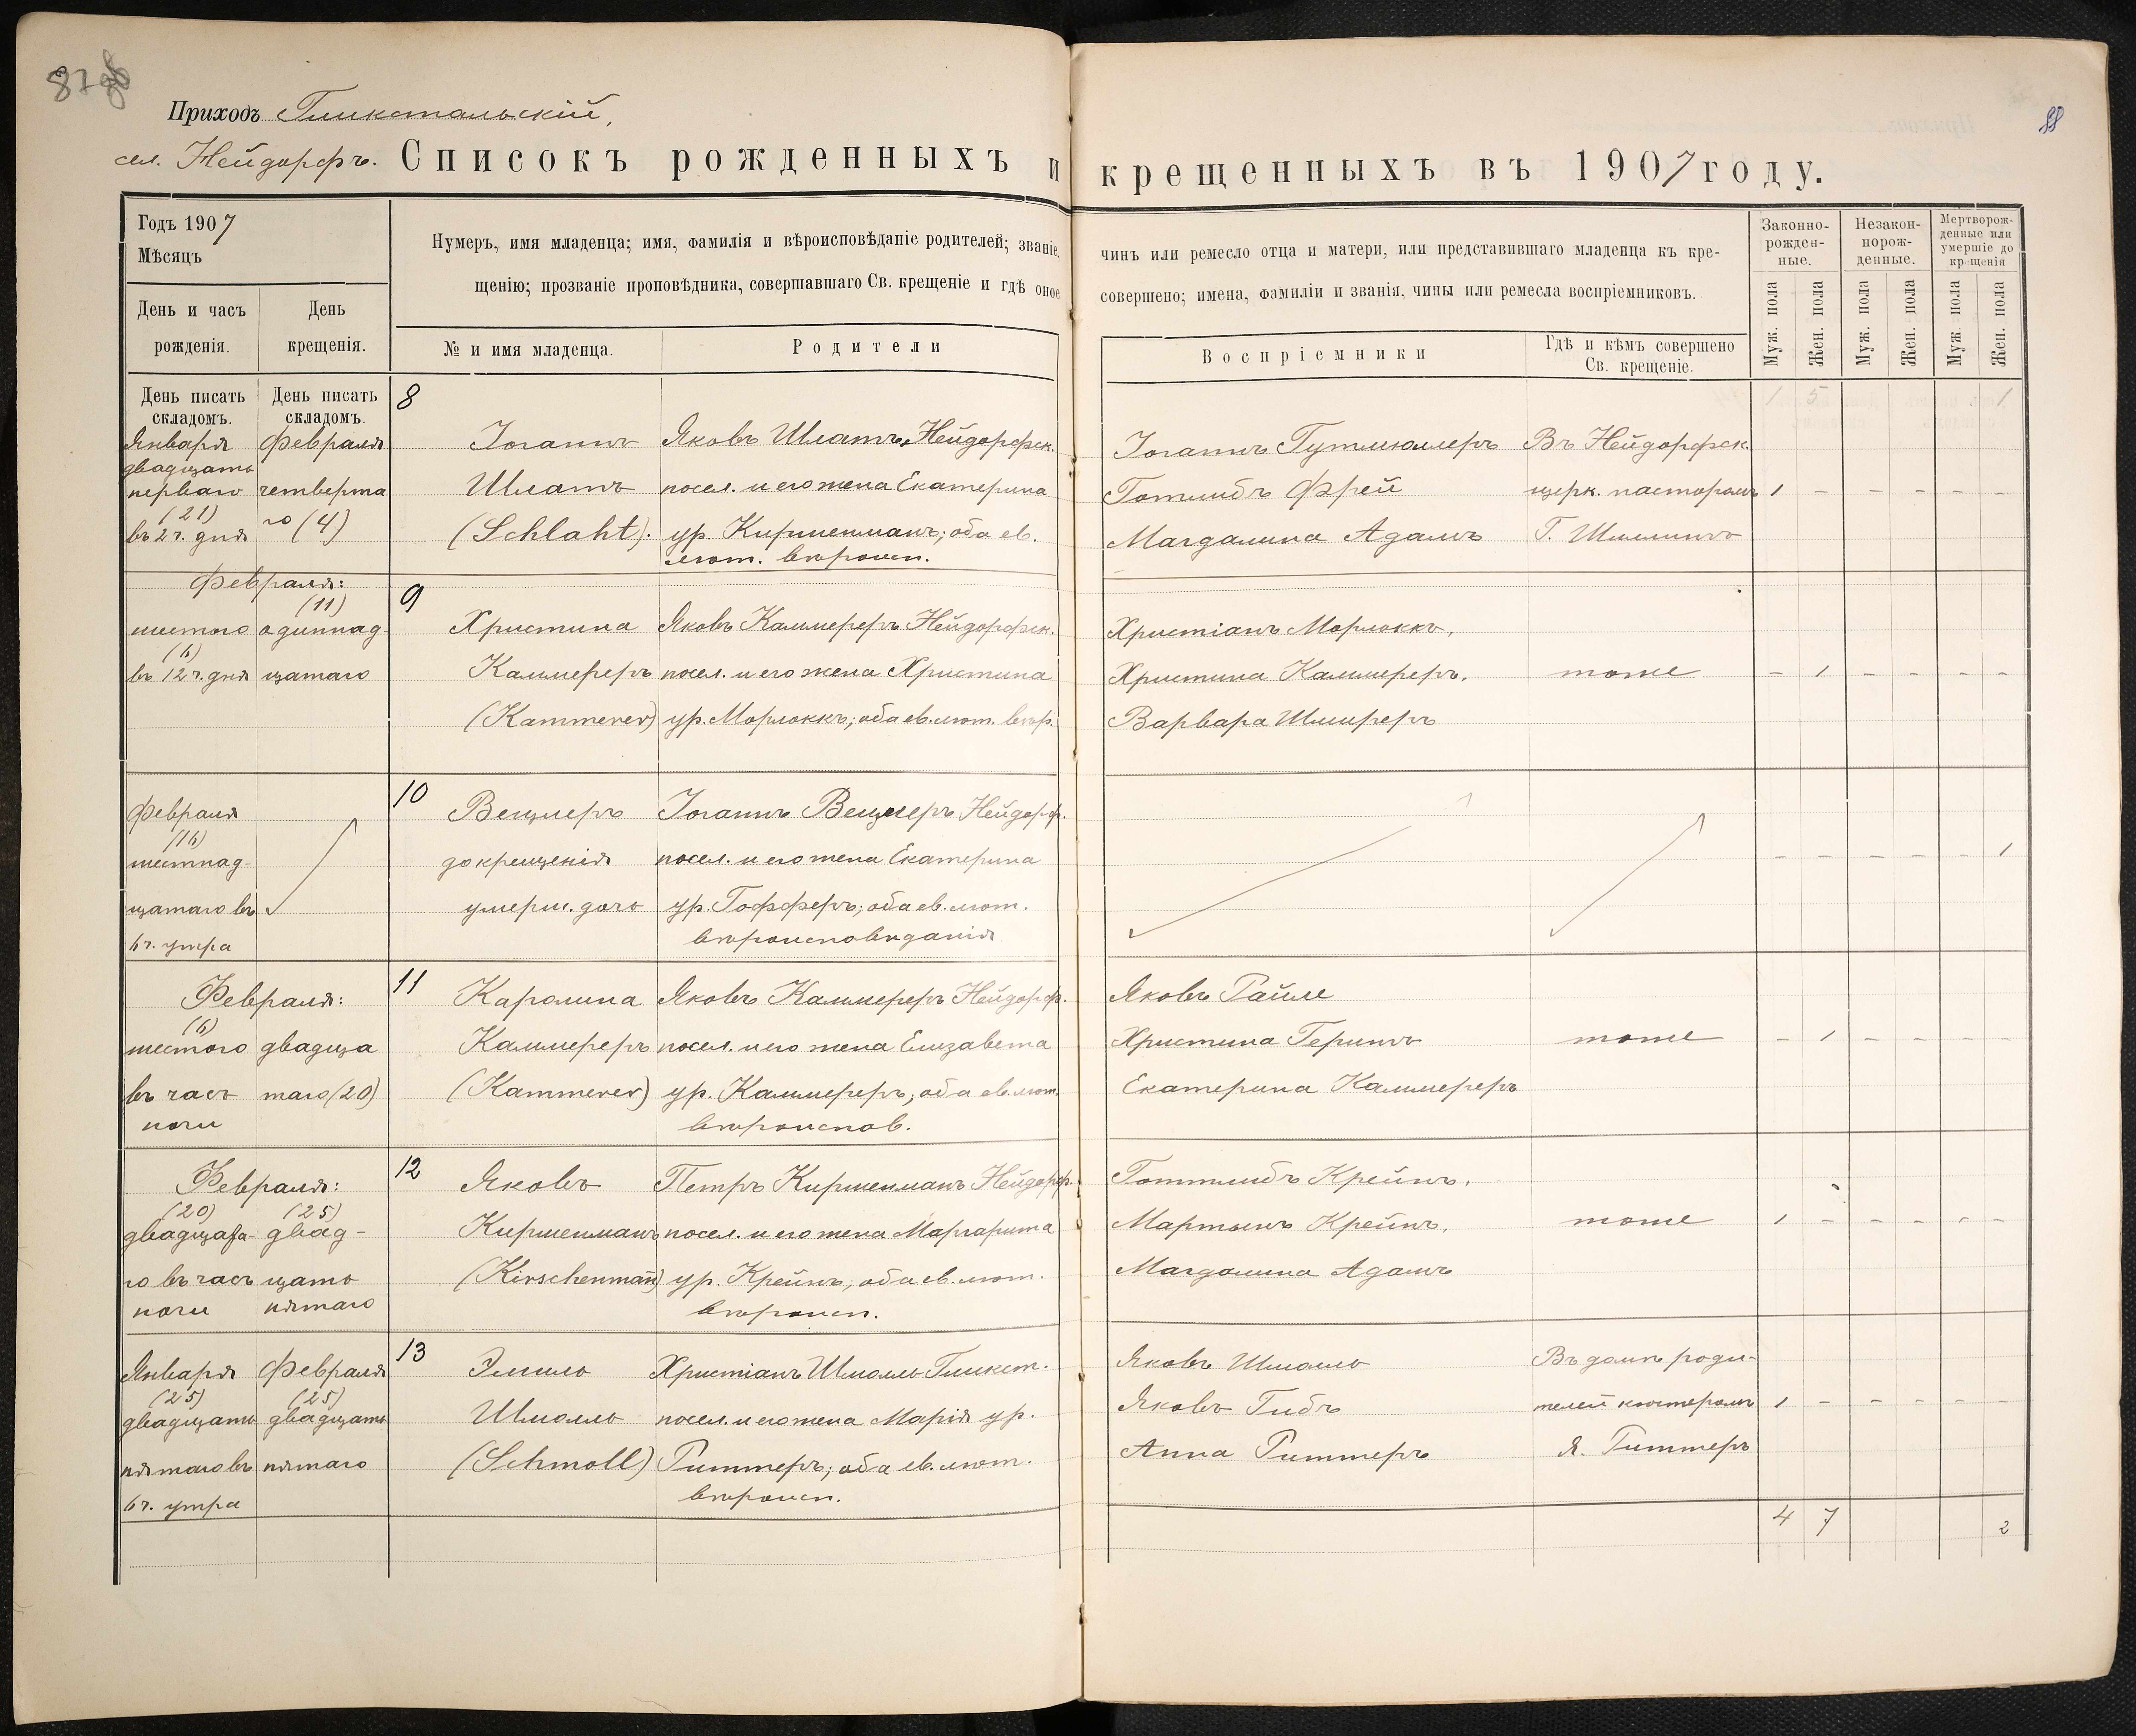 87
88
Приходъ Глюкстальскій,
сел. Нейдорфъ. Списокъ рожденныхъ и крещенныхъ въ 1907 году.
Годъ 1907
Мѣсяцъ
День и часъ рожденія.
День крещенія.
Нумеръ, имя младенца; имя, фамилія и вѣроисповѣданіе родителей; званіе, чинъ или ремесло отца и матери, или представившаго младенца къ кре-
щенію; прозваніе проповѣдника, совершавшаго Св. крещеніе и гдѣ оное совершено; имена, фамиліи и званія, чины или ремесла воспріемниковъ.
№ и имя младенца.
Родители
Воспріемники
Гдѣ и кѣмъ совершено
Св. крещеніе.
Законно-
рожден-
ные.
Незакон-
норож-
денные.
Мертворож-
денные или
умершіе до
крещенія
Муж. пола
Жен. пола
Муж. пола
Жен. пола
Муж. пола
Жен. пола
День писать
складомъ.
День писать
складомъ.
1 5 1
8
Января
двадцать
перваго
(21)
въ 2 ч. дня
Февраля
четверта
го (4)
Іоганнъ
Шлатъ
(Schlaht).
Яковъ Шлатъ, Нейдорфск.
посел. и его жена Екатерина
ур. Киршенманъ; оба ев.
лют. вѣроисп.
Іоганнъ Гутмюллеръ
Готлибъ Фрей
Магдалина Адамъ
Въ Нейдорфск.
церк. пасторомъ
Г. Шиллингъ
1 - - - - -
Февраля:
9
шестого
(6)
въ 12 ч. дня
(11)
одиннад-
цатаго
Христина
Каммереръ
(Kammerer)
Яковъ Каммереръ Нейдорфск.
посел. и его жена Христина
ур. Морлоккъ; оба ев. лют. вѣр.
Христіанъ Морлоккъ,
Христина Каммереръ,
Варвара Шмиреръ
тоже
- 1 - - - -
10
Февраля
(16)
шестнад-
цатаго въ
6 ч. утра
Вецлеръ
до крещенія
умерш. дочь
Іоганнъ Вецлеръ Нейдорф.
посел. и его жена Екатерина
ур. Гофферъ; оба ев. лют.
вѣроисповѣданія
- - - - - 1
11
Февраля:
(6)
шестого
въ часъ
ночи
двадца
таго (20)
Каролина
Каммереръ
(Kammerer)
Яковъ Каммереръ Нейдорф.
посел. и его жена Елизавета
ур. Каммереръ; оба ев. лют.
вѣроиспов.
Яковъ Райле
Христина Герингъ
Екатерина Каммереръ
тоже
- 1 - - - -
12
Февраля:
(20)
двадцата-
го въ часъ
ночи
(25)
двад-
цать
пятаго
Яковъ
Киршенманъ
(Kirschenmañ)
Петръ Киршенманъ Нейдорф.
посел. и его жена Маргарита
ур. Крейнъ; оба ев. лют.
вѣроисп.
Готтлибъ Крейнъ,
Мартынъ Крейнъ,
Магдалина Адамъ
тоже
1 - - - - -
13
Января
(25)
двадцать
пятаго въ
6 ч. утра
Февраля
(25)
двадцать
пятаго
Эмиль
Шмолль
(Schmoll)
Христіанъ Шмолль Глюкст.
посел. и его жена Марія ур.
Риттеръ; оба ев. лют.
вѣроисп.
Яковъ Шмолль
Яковъ Гибъ
Анна Риттеръ
Въ домѣ роди-
телей кюстеромъ
Я. Риттеръ
1 - - - - -
4 7 2